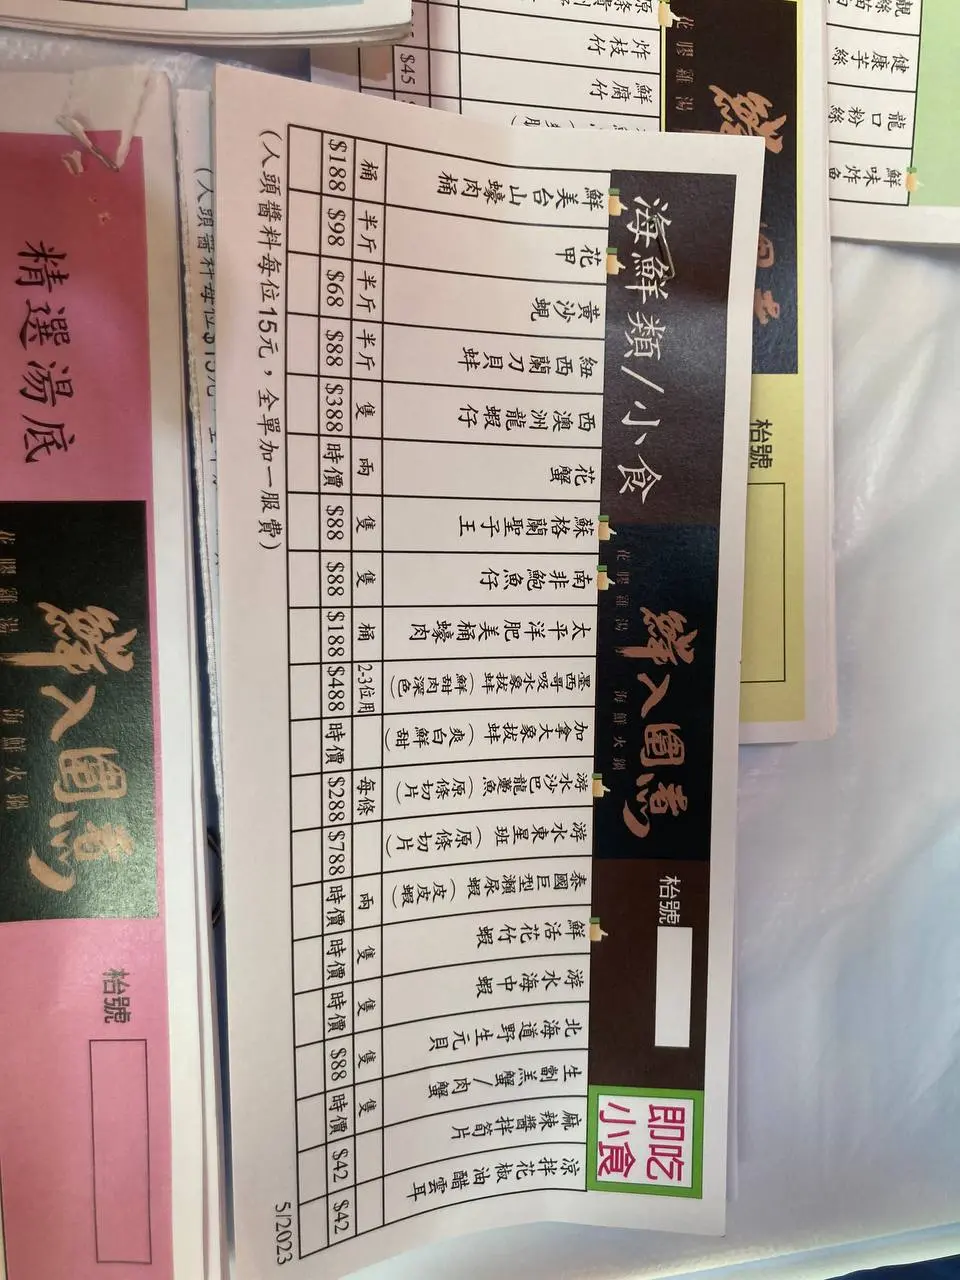 海鮮類/小食
花膠雞湯
海鮮火鍋
鮮入圍煮
枱號
即吃
小食
鮮美台山蠔肉桶 桶 $188
花甲 半斤 $98
黃沙蜆 半斤 $68
紐西蘭刀貝蚌 半斤 $88
西澳洲龍蝦仔 隻 $388
花蟹 兩 時價
蘇格蘭聖子王 隻 $88
南非鮑魚仔 隻 $88
太平洋肥美桶蠔肉 桶 $188
墨西哥吸水象拔蚌(鮮甜肉深色) 2-3位用 $488
加拿大象拔蚌(爽白鮮甜) 時價
游水沙巴龍躉魚(原條切片) 每條 $288
游水東星班(原條切片) $788
泰國巨型瀨尿蝦(皮皮蝦) 兩 時價
鮮活花竹蝦 隻 時價
游水海中蝦 隻 時價
北海道野生元貝 隻 $88
生劏羔蟹/肉蟹 隻 時價
麻辣醬拌筍片 $42
涼拌花椒油醋雲耳 $42
(人頭醬料每位15元，全單加一服費)
5/2023
精選湯底
花膠雞湯
海鮮火鍋
鮮入圍煮
枱號
(人頭醬料每位$15元
炸枝竹 $45
鮮腐竹
花膠雞湯
鮮
枱號
健康芋絲
龍口粉絲
鮮味炸魚